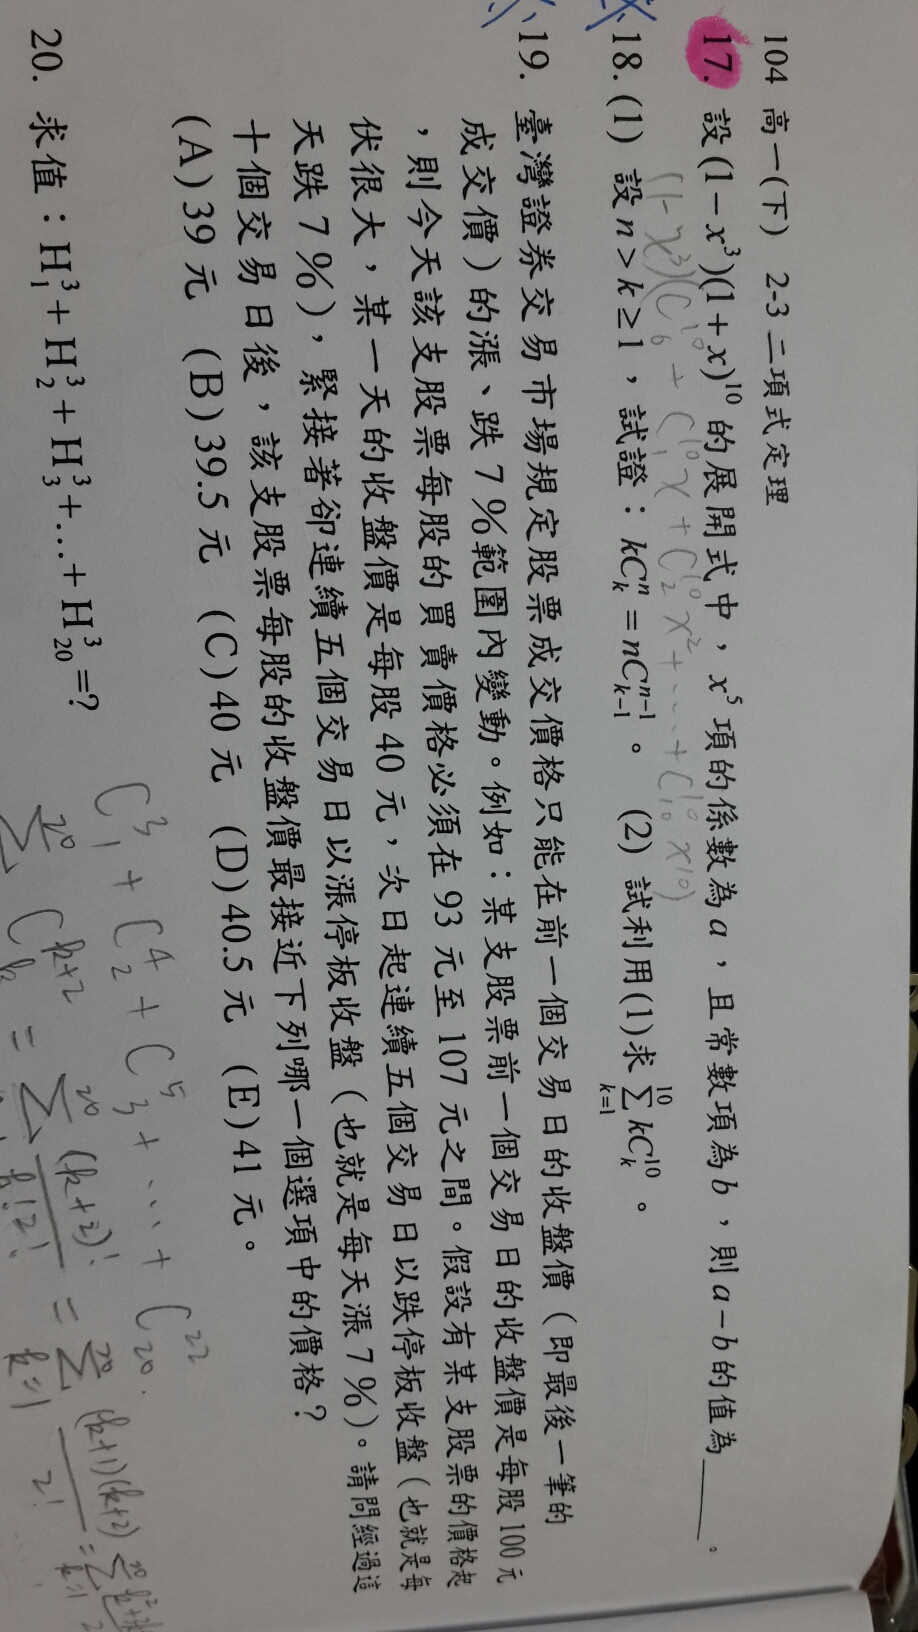 104 高一(下) 2-3 二項式定理
17. 設(1－x³)(1＋x)¹⁰ 的展開式中，x⁵ 項的係數為a，且常數項為b，則a－b的值為______。
(1-x³)(C₀¹⁰ + C₁¹⁰x + C₂¹⁰x² + ... + C₁₀¹⁰x¹⁰)
18. (1) 設n＞k≥1，試證：kCₖⁿ＝nCₖ₋₁ⁿ⁻¹。 (2) 試利用(1)求 Σₖ₌₁¹⁰ kCₖ¹⁰。
19. 臺灣證券交易市場規定股票成交價格只能在前一個交易日的收盤價（即最後一筆的
成交價）的漲、跌7%範圍內變動。例如：某支股票前一個交易日的收盤價是每股100元
，則今天該支股票每股的買賣價格必須在93元至107元之間。假設有某支股票的價格起
伏很大，某一天的收盤價是每股40元，次日起連續五個交易日以跌停板收盤（也就是每
天跌7%），緊接著卻連續五個交易日以漲停板收盤（也就是每天漲7%）。請問經過這
十個交易日後，該支股票每股的收盤價最接近下列哪一個選項中的價格？
(A)39元 (B)39.5元 (C)40元 (D)40.5元 (E)41元。
20. 求值：H₁³＋H₂³＋H₃³＋…＋H₂₀³＝?
C₁³ + C₂⁴ + C₃⁵ + ... + C₂₀²²